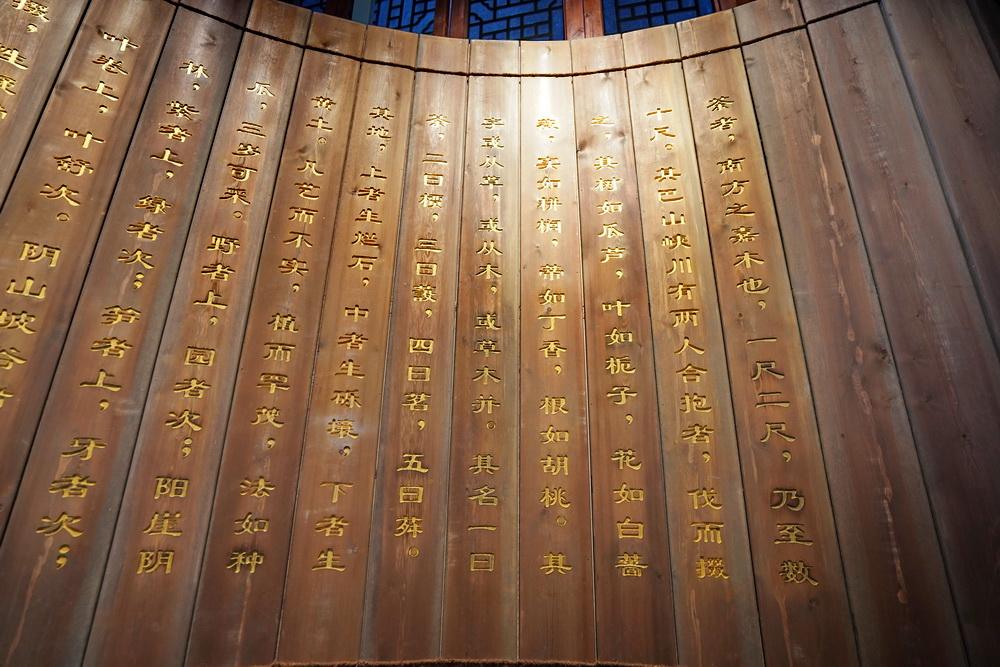 茶者，南方之嘉木也，一尺二尺，乃至数
十尺。其巴山峡川有两人合抱者，伐而掇
之，其树如瓜芦，叶如栀子，花如白蔷
薇，实如栟榈，蒂如丁香，根如胡桃。其
字或从草，或从木，或草木并。其名一曰
茶，二曰槚，三曰蔎，四曰茗，五曰荈。
其地，上者生烂石，中者生砾壤，下者生
黄土。凡艺而不实，植而罕茂，法如种
瓜，三岁可采。野者上，园者次；阳崖阴
林，紫者上，绿者次；笋者上，牙者次；
叶卷上，叶舒次。阴山坡谷
掇，性凝